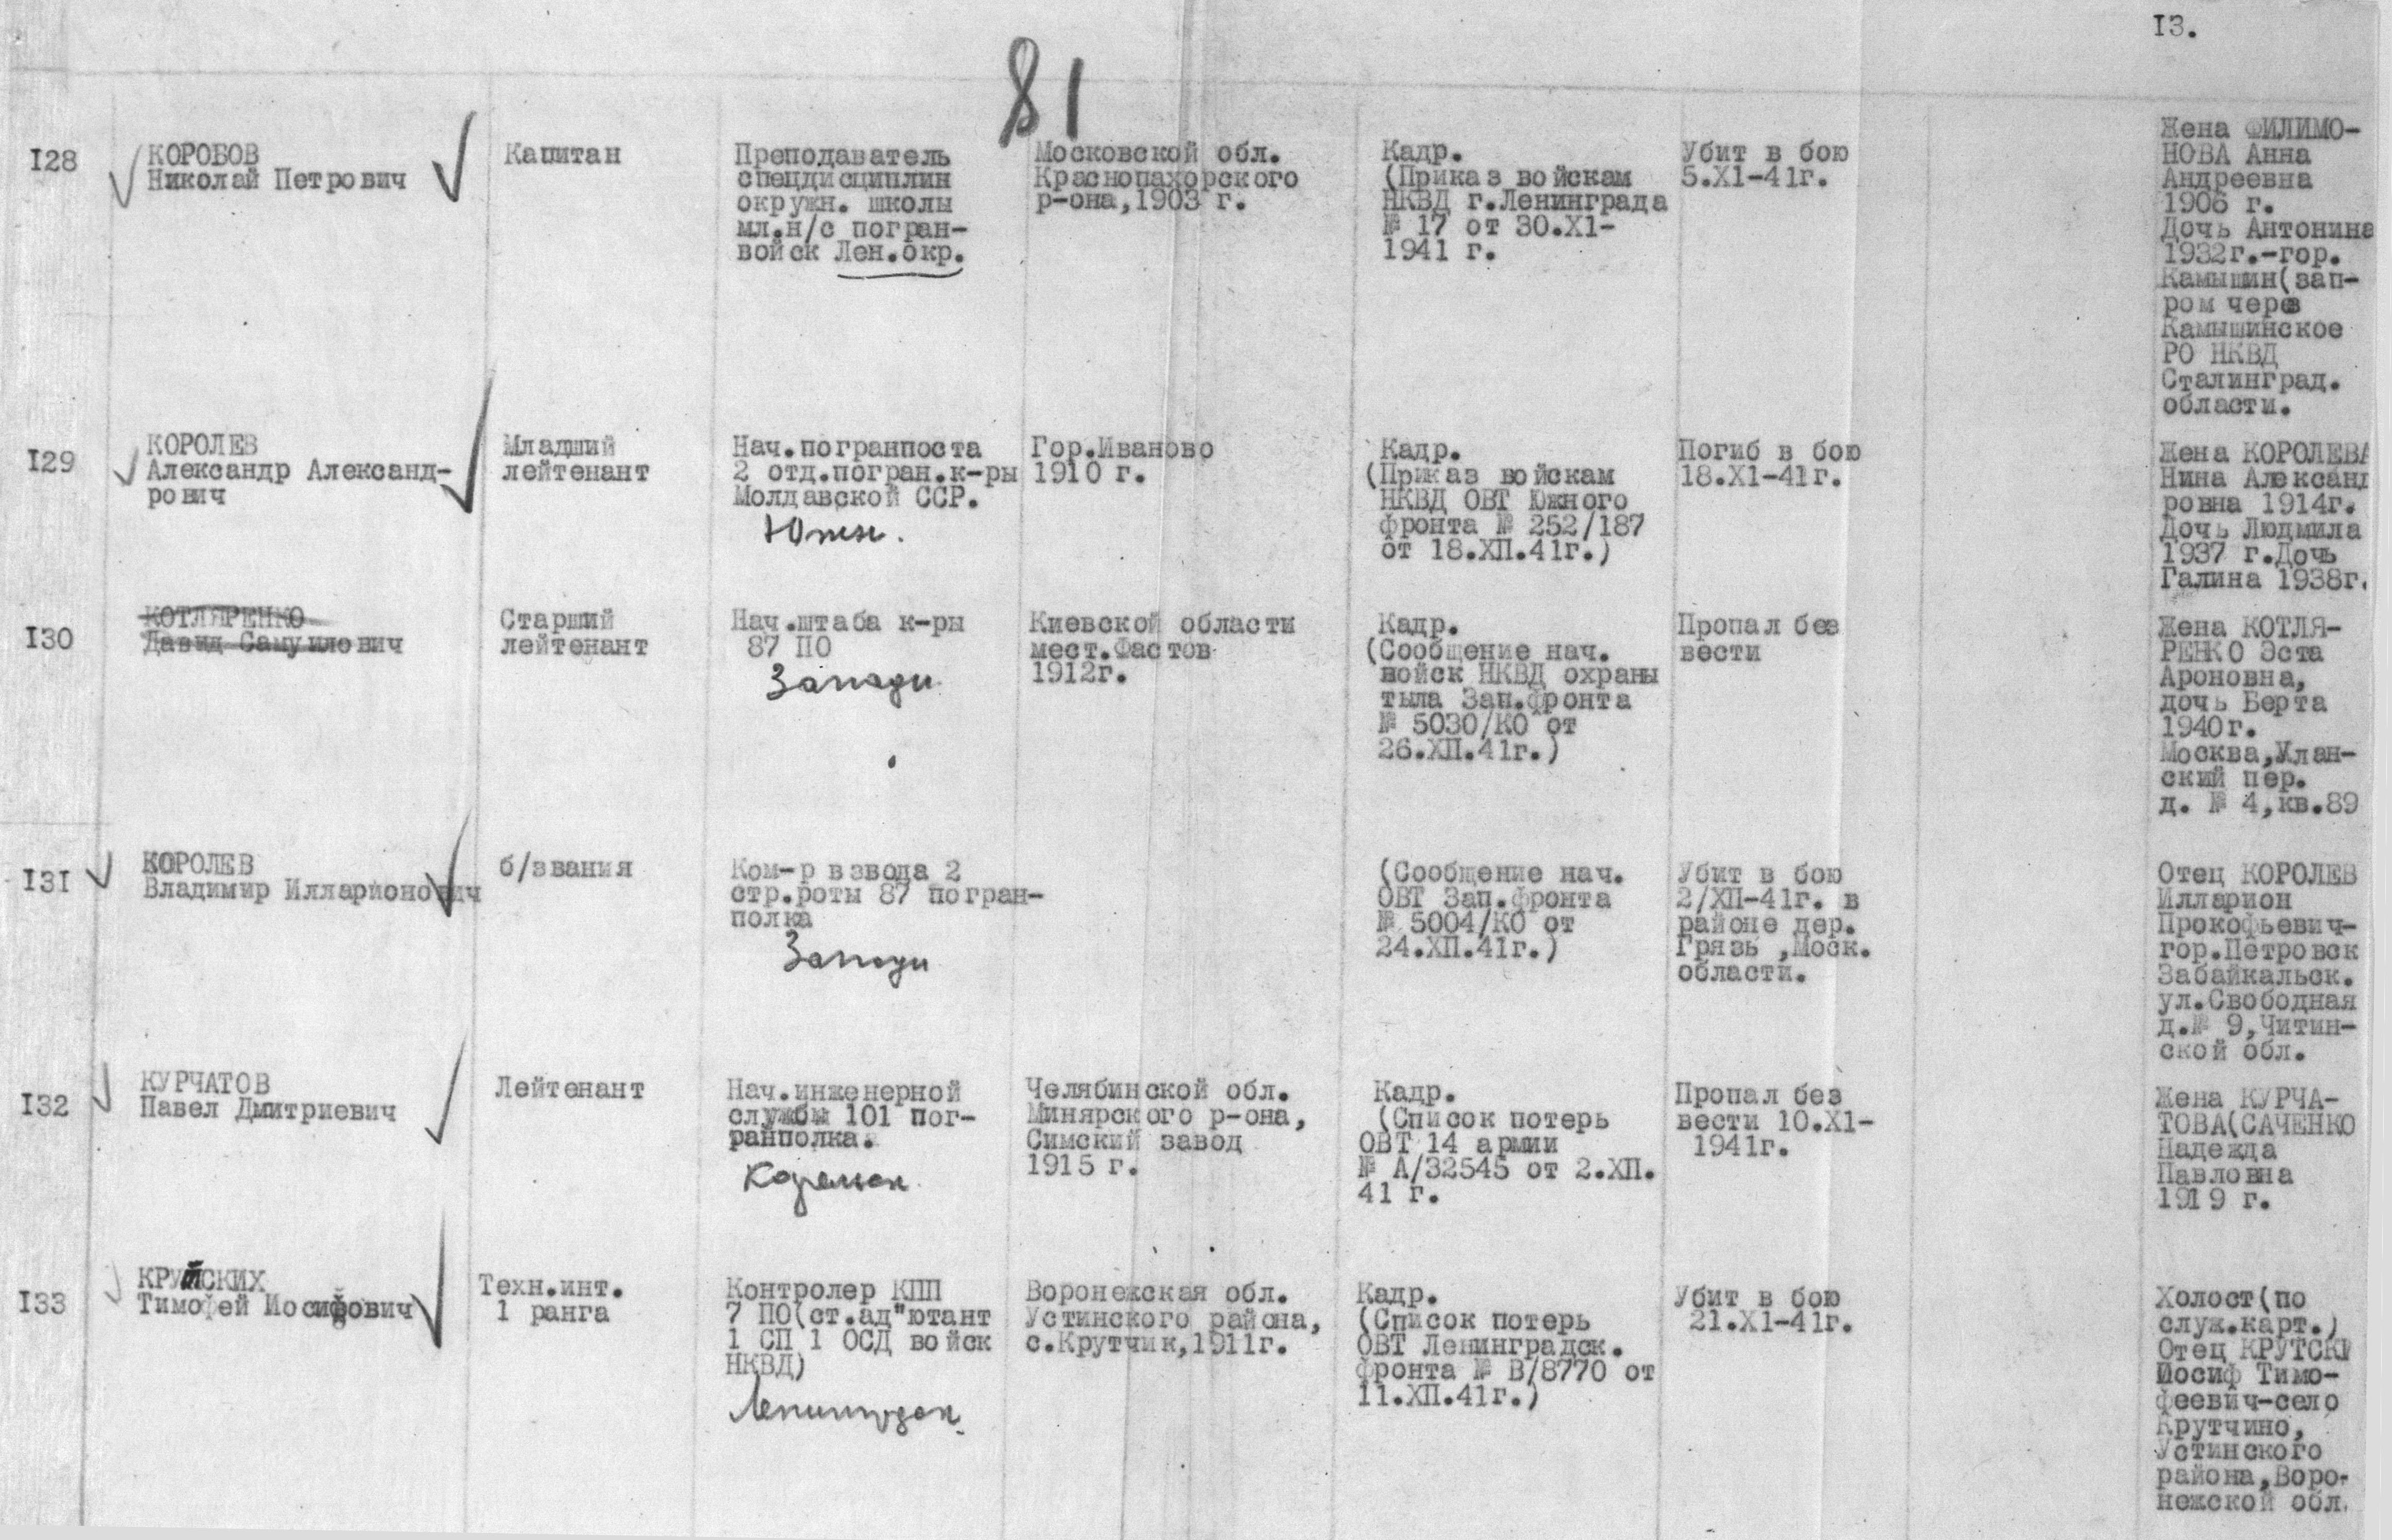 13.
81
128
КОРОБОВ
Николай Петрович
Капитан
Преподаватель
спецдисциплин
окружн. школы
мл.н/с погран-
войск Лен.окр.
Московской обл.
Краснопахорского
р-она,1903 г.
Кадр.
(Приказ войскам
НКВД г.Ленинграда
№ 17 от 30.XI-
1941 г.
Убит в бою
5.XI-41г.
Жена ФИЛИМО-
НОВА Анна
Андреевна
1906 г.
Дочь Антонина
1932г.-гор.
Камышин(зап-
ром через
Камышинское
РО НКВД
Сталинград.
области.
129
КОРОЛЕВ
Александр Александ-
рович
Младший
лейтенант
Нач.погранпоста
2 отд.погран.к-ры
Молдавской ССР.
Южн.
Гор.Иваново
1910 г.
Кадр.
(Приказ войскам
НКВД ОВТ Южного
фронта № 252/187
от 18.XП.41г.)
Погиб в бою
18.XI-41г.
Жена КОРОЛЕВА
Нина Александ
ровна 1914г.
Дочь Людмила
1937 г.Дочь
Галина 1938г.
130
КОТЛЯРЕНКО
Давид Самуилович
Старший
лейтенант
Нач.штаба к-ры
87 ПО
Западн
Киевской области
мест.Фастов
1912г.
Кадр.
(Сообщение нач.
войск НКВД охраны
тыла Зап.фронта
№ 5030/КО от
26.XП.41г.)
Пропал без
вести
Жена КОТЛЯ-
РЕНКО Эста
Ароновна,
дочь Берта
1940г.
Москва,Улан-
ский пер.
д. № 4,кв.89
131
КОРОЛЕВ
Владимир Илларионович
б/звания
Ком-р взвода 2
стр.роты 87 погран-
полка
Западн
(Сообщение нач.
ОВТ Зап.фронта
№ 5004/КО от
24.XП.41г.)
Убит в бою
2/XП-41г. в
районе дер.
Грязь ,Моск.
области.
Отец КОРОЛЕВ
Илларион
Прокофьевич-
гор.Петровск
Забайкальск.
ул.Свободная
д.№ 9,Читин-
ской обл.
132
КУРЧАТОВ
Павел Дмитриевич
Лейтенант
Нач.инженерной
службы 101 пог-
ранполка.
Карельск
Челябинской обл.
Минярского р-она,
Симский завод
1915 г.
Кадр.
(Список потерь
ОВТ 14 армии
№ А/32545 от 2.XП.
41 г.
Пропал без
вести 10.XI-
1941г.
Жена КУРЧА-
ТОВА(САЧЕНКО
Надежда
Павловна
1919 г.
133
КРУТСКИХ
Тимофей Иосифович
Техн.инт.
1 ранга
Контролер КПП
7 ПО(ст.ад"ютант
1 СП 1 ОСД войск
НКВД)
Ленинградск.
Воронежская обл.
Устинского района,
с.Крутчик,1911г.
Кадр.
(Список потерь
ОВТ Ленинградск.
фронта № В/8770 от
11.XП.41г.)
Убит в бою
21.XI-41г.
Холост(по
служ.карт.)
Отец КРУТСКИ
Иосиф Тимо-
феевич-село
Крутчино,
Устинского
района,Воро-
нежской обл.